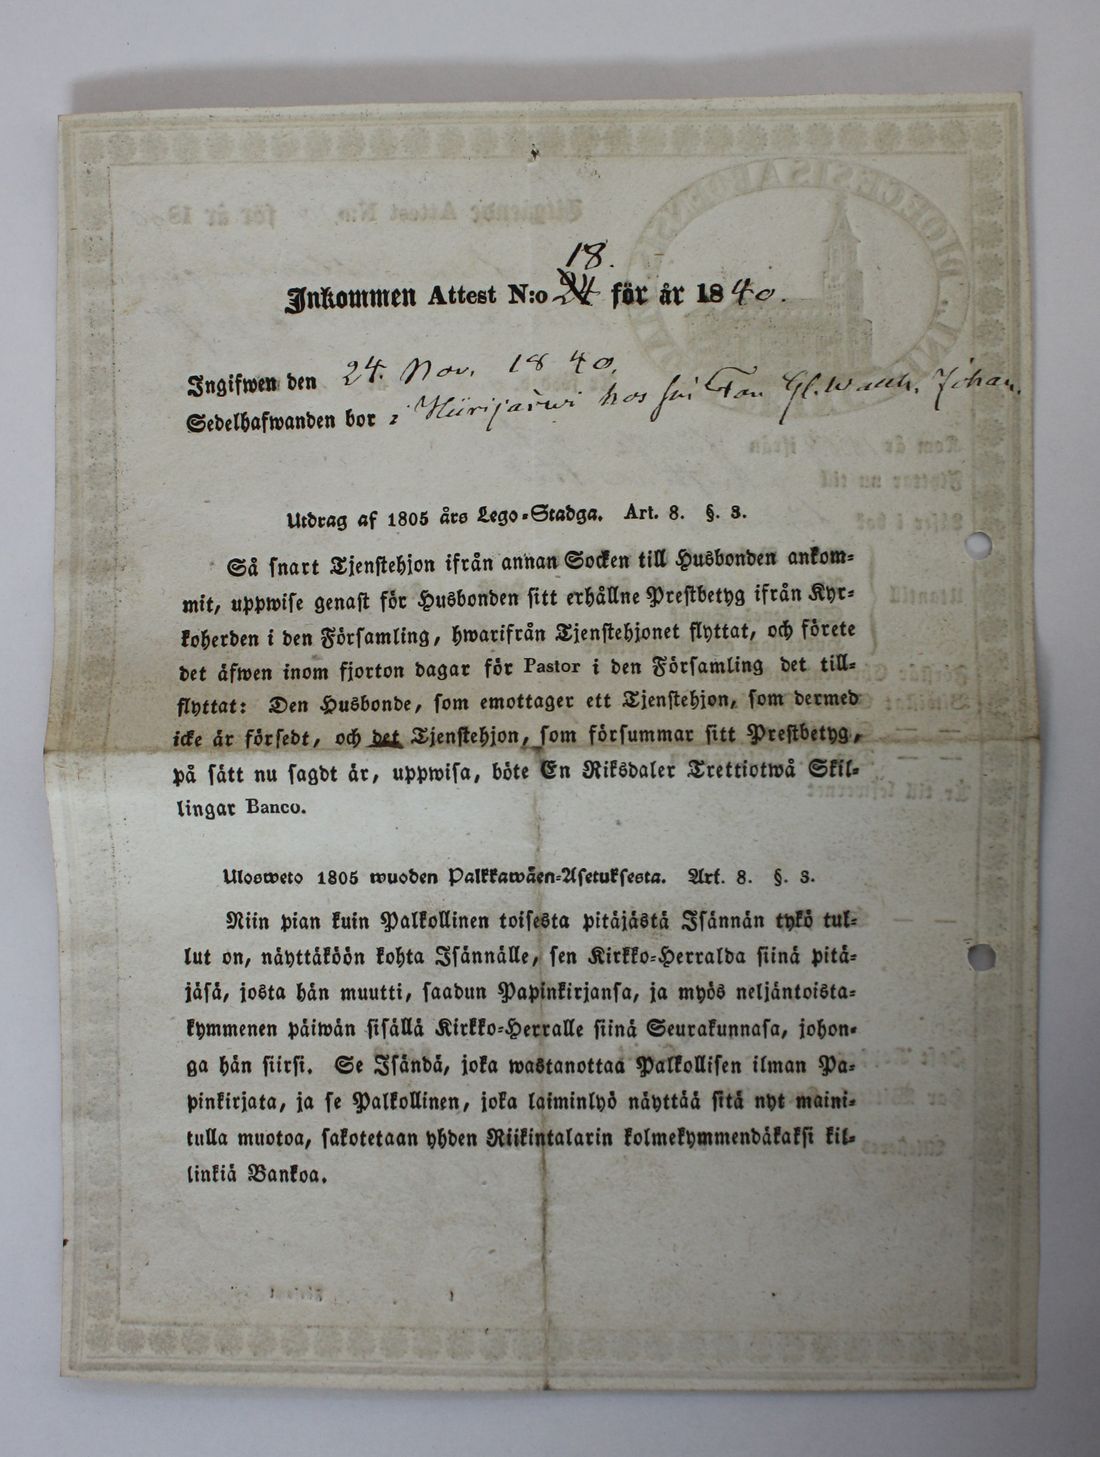 18.
Inkommen Attest N:o 24 för år 1840.
Ingifwen den 24. Nov. 1840.
Sedelhafwanden bor i Hiirijärwi hos Johan.
Utdrag af 1805 års Lego-Stadga. Art. 8. §. 3.
Så snart Tjenstehjon ifrån annan Socken till Husbonden ankom-
mit, uppwise genast för Husbonden sitt erhållne Prestbetyg ifrån Kyr-
koherden i den Församling, hwarifrån Tjenstehjonet flyttat, och förete
det äfwen inom fjorton dagar för Pastor i den Församling det till-
flyttat: Den Husbonde, som emottager ett Tjenstehjon, som dermed
icke är försedt, och det Tjenstehjon, som försummar sitt Prestbetyg,
på sätt nu sagdt är, uppwisa, böte En Riksdaler Trettiotwå Skil-
lingar Banco.
Ulosweto 1805 wuoden Palkkawäen-Asetuksesta. Art. 8. §. 3.
Niin pian kuin Palkollinen toisesta pitäjästä Isännän tykö tul-
lut on, näyttäköön kohta Isännälle, sen Kirkko-Herralda siinä pitä-
jäsä, josta hän muutti, saadun Papinkirjansa, ja myös neljäntoista-
kymmenen päiwän sisällä Kirkko-Herralle siinä Seurakunnasa, johon-
ga hän siirsi. Se Isändä, joka wastanottaa Palkollisen ilman Pa-
pinkirjata, ja se Palkollinen, joka laiminlyö näyttää sitä nyt maini-
tulla muotoa, sakotetaan yhden Riikintalarin kolmekymmendäkaksi kil-
linkiä Bankoa.